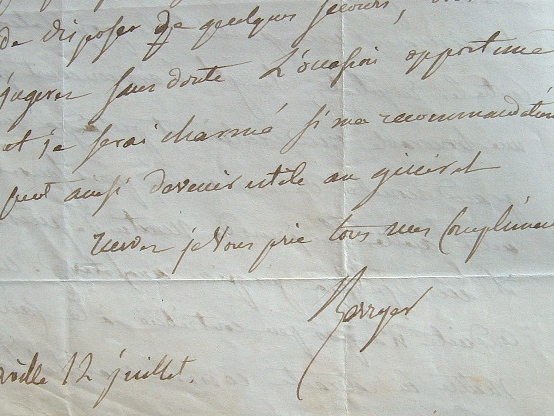 de disposer de quelques secours,
jugerez sans doute L'occasion opportune
et je serai charmé si ma recommandation
peut ainsi devenir utile au général
recevez je vous prie tous mes Complimen
Berryer
ville 12 juillet.